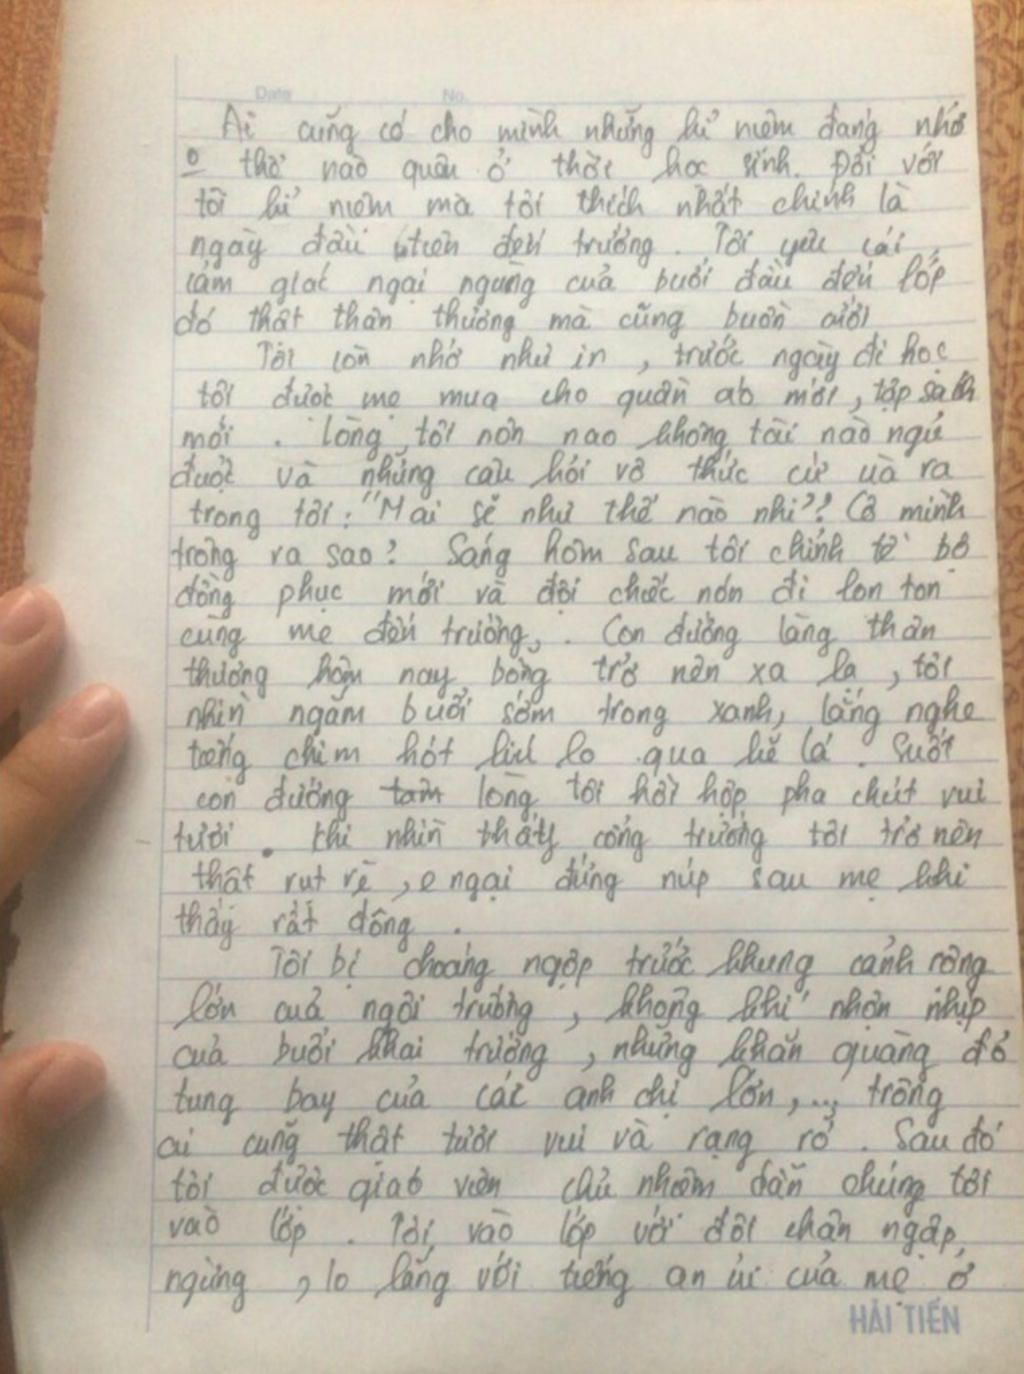 Date No.
Ai cũng có cho mình những kỉ niệm đáng nhớ
thể nào quên ở thời học sinh. Đối với
tôi kỉ niệm mà tôi thích nhất chính là
ngày đầu tiên đến trường. Tôi yêu cái
cảm giác ngại ngùng của buổi đầu đến lớp
đó thật thân thương mà cũng buồn cười
Tôi còn nhớ như in, trước ngày đi học
tôi được mẹ mua cho quần áo mới, tập sách
mới. Lòng tôi nôn nao không tài nào ngủ
được và những câu hỏi vô thức cứ ùa ra
trong tôi: "Mai sẽ như thế nào nhỉ"? Cô mình
trông ra sao? Sáng hôm sau tôi chỉnh tề bộ
đồng phục mới và đội chiếc nón đi lon ton
cùng mẹ đến trường. Con đường làng thân
thương hôm nay bỗng trở nên xa lạ, tôi
nhìn ngắm buổi sớm trong xanh, lắng nghe
tiếng chim hót líu lo qua kẽ lá. Suốt
con đường lòng tôi hồi hộp pha chút vui
tươi. Khi nhìn thấy cổng trường tôi trở nên
thật rụt rè, e ngại đứng núp sau mẹ khi
thấy rất đông.
Tôi bị choáng ngợp trước khung cảnh rộng
lớn của ngôi trường, không khí nhộn nhịp
của buổi khai trường, những khăn quàng đỏ
tung bay của các anh chị lớn,... trông
ai cũng thật tươi vui và rạng rỡ. Sau đó
tôi được giáo viên chủ nhiệm dẫn chúng tôi
vào lớp. Tôi vào lớp với đôi chân ngập
ngừng, lo lắng với tiếng an ủi của mẹ ở
HẢI TIẾN